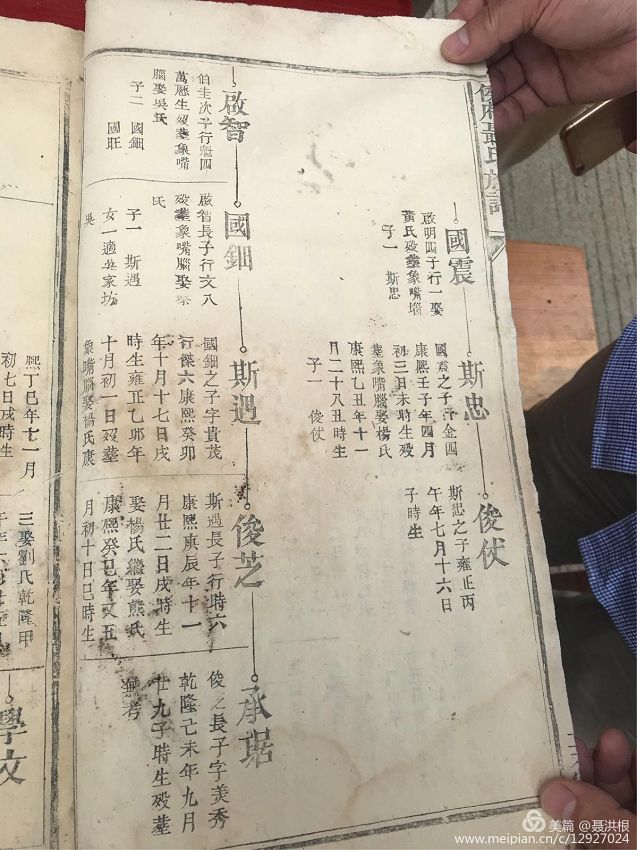 國震
啟明四子行一娶
黃氏歿塟象嘴墈
子一 斯忠
斯忠
國震之子行金四
康熙壬子年四月
初三日未時生歿
塟象嘴腦娶楊氏
康熙乙丑年十一
月二十八丑時生
子一 俊伏
俊伏
斯忠之子雍正丙
午年七月十六日
子時生
啟智
伯圭次子行進四
萬曆生歿塟象嘴
腦娶吳氏
子二 國鈿
國旺
國鈿
啟智長子行文八
歿塟象嘴腦娶
氏
子一 斯遇
女一適吳家坊
吳
斯遇
國鈿之子字貴茂
行傑六康熙癸卯
年十月十七日戌
時生雍正乙卯年
十月初一日歿塟
象嘴腦娶楊氏康
俊芝
斯遇長子行時六
康熙庚辰年十一
月廿二日戌時生
娶楊氏繼娶熊氏
康熙癸巳年又五
月初十日巳時生
承琚
俊之長子字美秀
乾隆己未年九月
廿九子時生歿塟
無考
熙丁巳年十一月
初七日戌時生
三娶劉氏乾隆甲
學文
美篇 @聂洪根
www.meipian.cn/c/12927024